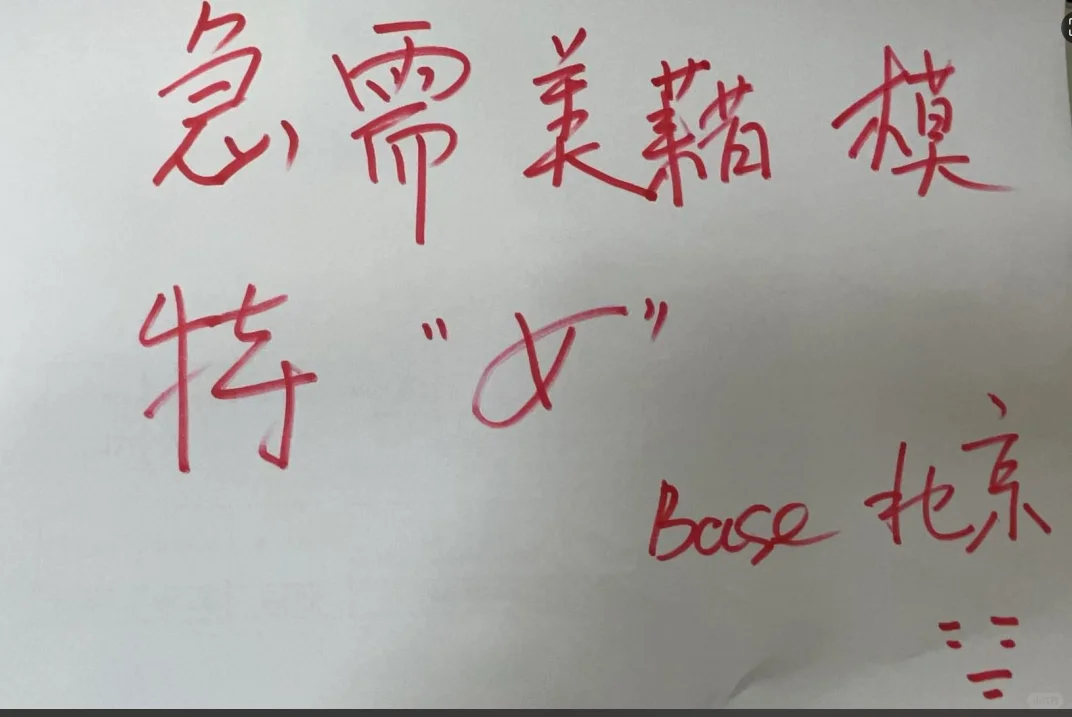 急需美籍模
特“女”
Base 北京